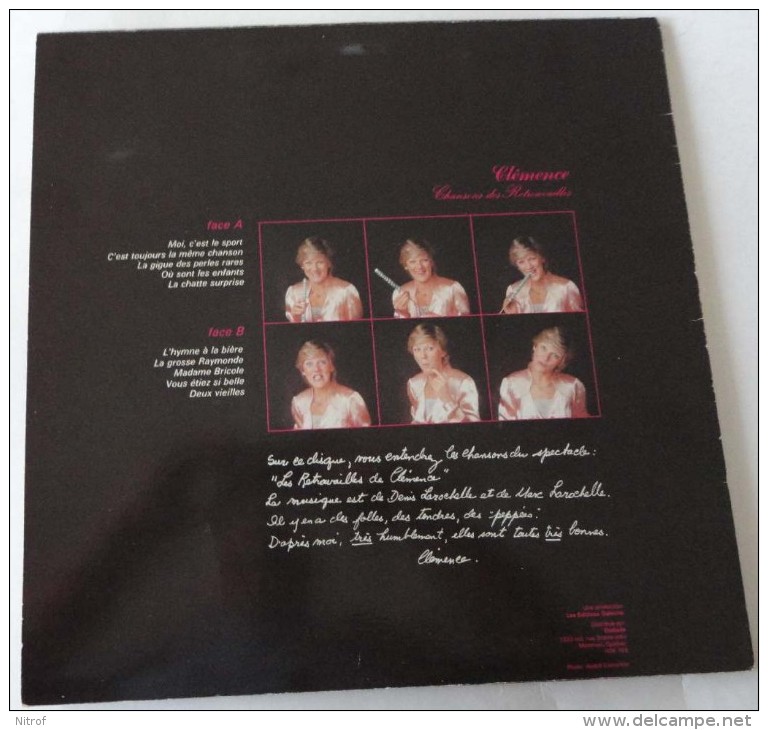 Clémence
Chansons des Retrouvailles
face A
Moi, c'est le sport
C'est toujours la même chanson
La gigue des perles rares
Où sont les enfants
La chatte surprise
face B
L'hymne à la bière
La grosse Raymonde
Madame Bricole
Vous étiez si belle
Deux vieilles
Sur ce disque, vous entendrez les chansons du spectacle:
"Les Retrouvailles de Clémence"
La musique est de Denis Larochelle et de Marc Larochelle.
Il y en a des folles, des tendres, des "peppées".
D'après moi, très humblement, elles sont toutes très bonnes.
Clémence.
une production
Les Éditions
Distribué par
Montréal, Québec
Photo:
Nitrof
www.delcampe.net